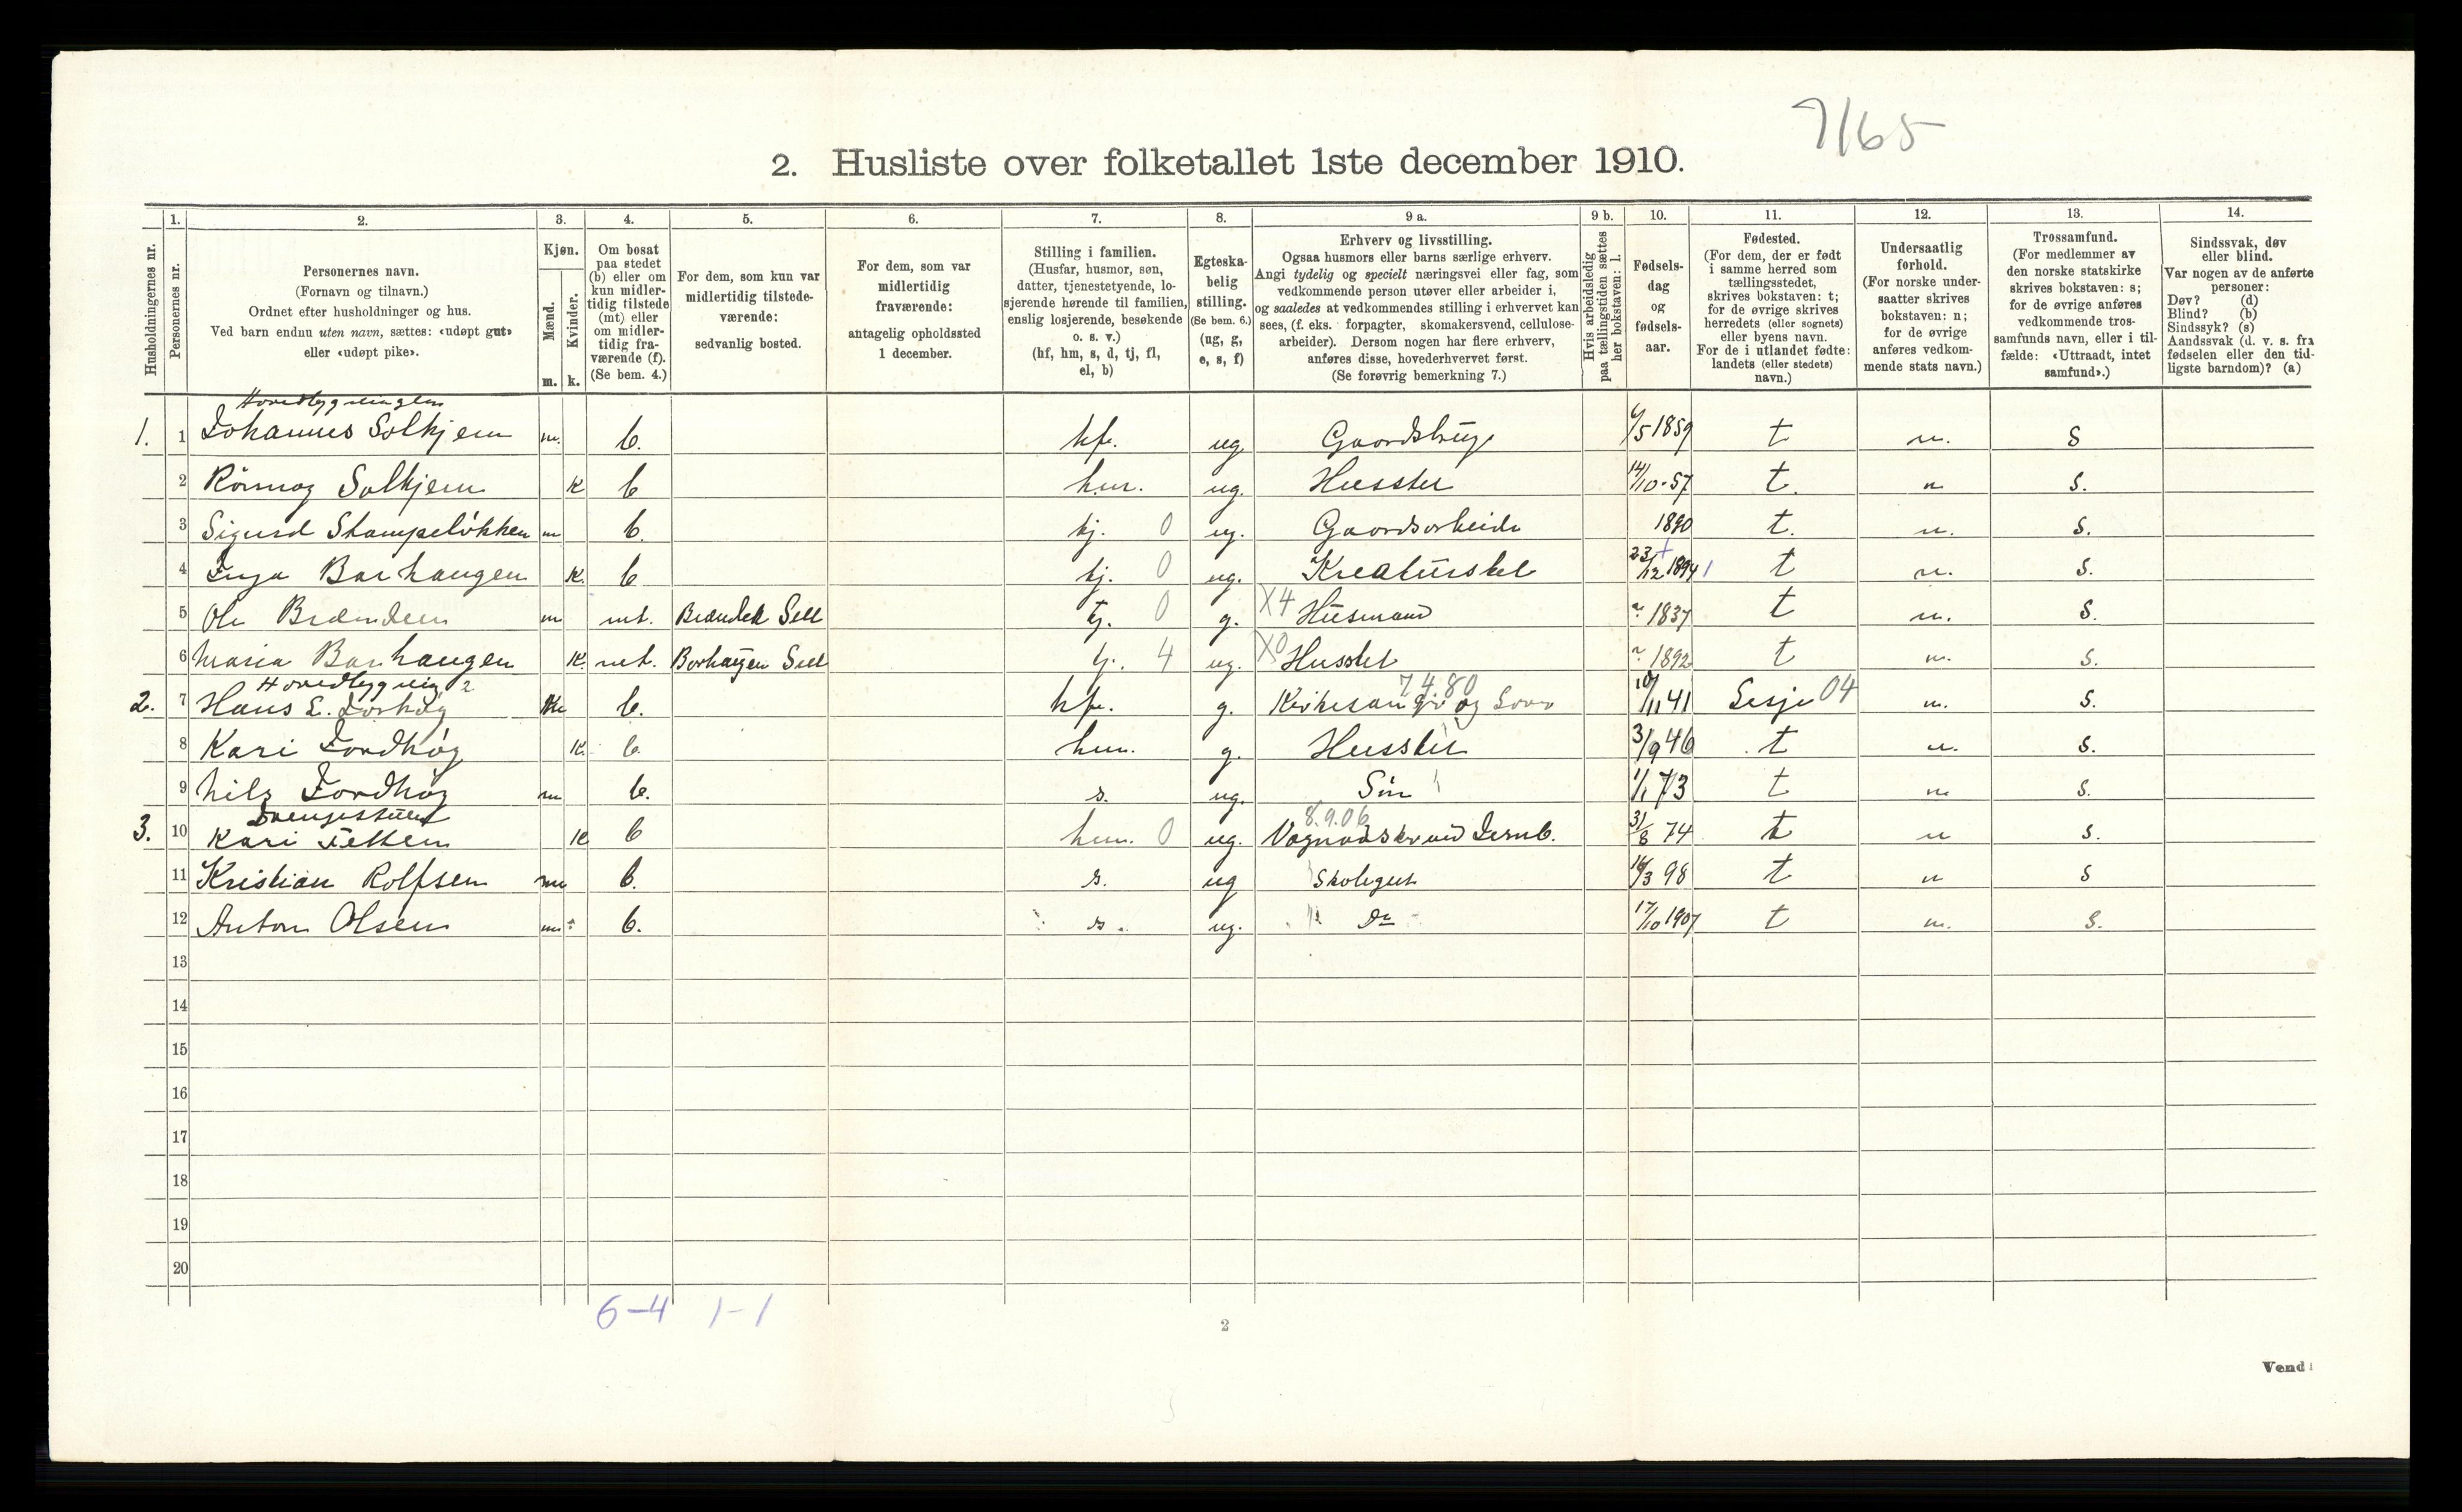 7/65
2. Husliste over folketallet 1ste december 1910.
1. 2. 3. 4. 5. 6. 7. 8. 9 a. 9 b. 10. 11. 12. 13. 14.
Husholdningernes nr.
Personernes nr.
Personernes navn.
(Fornavn og tilnavn.)
Ordnet efter husholdninger og hus.
Ved barn endnu uten navn, sættes: «udøpt gut»
eller «udøpt pike».
Kjøn.
Mænd.
Kvinder.
m. k.
Om bosat
paa stedet
(b) eller om
kun midler-
tidig tilstede
(mt) eller
om midler-
tidig fra-
værende (f).
(Se bem. 4.)
For dem, som kun var
midlertidig tilstede-
værende:
sedvanlig bosted.
For dem, som var
midlertidig
fraværende:
antagelig opholdssted
1 december.
Stilling i familien.
(Husfar, husmor, søn,
datter, tjenestetyende, lo-
sjerende hørende til familien,
enslig losjerende, besøkende
o. s. v.)
(hf, hm, s, d, tj, fl,
el, b)
Egteska-
belig
stilling.
(Se bem. 6.)
(ug, g,
e, s, f)
Erhverv og livsstilling.
Ogsaa husmors eller barns særlige erhverv.
Angi tydelig og specielt næringsvei eller fag, som
vedkommende person utøver eller arbeider i,
og saaledes at vedkommendes stilling i erhvervet kan
sees, (f. eks. forpagter, skomakersvend, cellulose-
arbeider). Dersom nogen har flere erhverv,
anføres disse, hovederhvervet først.
(Se forøvrig bemerkning 7.)
Hvis arbeidsledig
paa tællingstiden sættes
her bokstaven: l.
Fødsels-
dag
og
fødsels-
aar.
Fødested.
(For dem, der er født
i samme herred som
tællingsstedet,
skrives bokstaven: t;
for de øvrige skrives
herredets (eller sognets)
eller byens navn.
For de i utlandet fødte:
landets (eller stedets)
navn.)
Undersaatlig
forhold.
(For norske under-
saatter skrives
bokstaven: n;
for de øvrige
anføres vedkom-
mende stats navn.)
Trossamfund.
(For medlemmer av
den norske statskirke
skrives bokstaven: s;
for de øvrige anføres
vedkommende tros-
samfunds navn, eller i til-
fælde: «Uttraadt, intet
samfund».)
Sindssvak, døv
eller blind.
Var nogen av de anførte
personer:
Døv? (d)
Blind? (b)
Sindssyk? (s)
Aandssvak (d. v. s. fra
fødselen eller den tid-
ligste barndom)? (a)
Hovedbygningen
1. 1 Johannes Solhjem m. b. hf. ug Gaardsbrug 6/5 1859 t n. S
2 Rönnog Solhjem k b hm. ug. Husstel 14/10-57 t. n S.
3 Sigurd Stampeløkken m b. tj. 0 ug. Gaardsarbeide 1890 t. n. S.
4 Inga Barhaugen k. b tj. 0 ug. Kreaturstel 23/12 1894 t n. S.
5 Ole Brænden m mt. Brænden Sell tj. 0 g. X4 Husmand 1837 t n. S.
6 Maria Barhaugen k. mt. Borhaugen Sell tj. 4 ug. X0 Husstel 1892 t n. S.
Hovedbygning 2
7.4.80
2. 7 Hans L. b. hf. g. Kirkesanger og 10/11 41 Lesje 04 n. S.
8 Kari Fordhøg k. b. hm. g. Husstel 3/9 46 t n. S.
9 Nils Fordhøg m b. s. ug. Søn 1/1 73 t n S.
8.9.06
3. 10 Kari k b hm. 0 ug. ved Jernb. 31/8 74 t n S.
11 Kristian Rolfsen m b. s. ug Skolegut 16/3 98 t n S
12 Anton Olsen m b. s. ug. Do 17/10 1907 t n. S.
13
14
15
16
17
18
19
20
6-4 1-1
2
Vend!